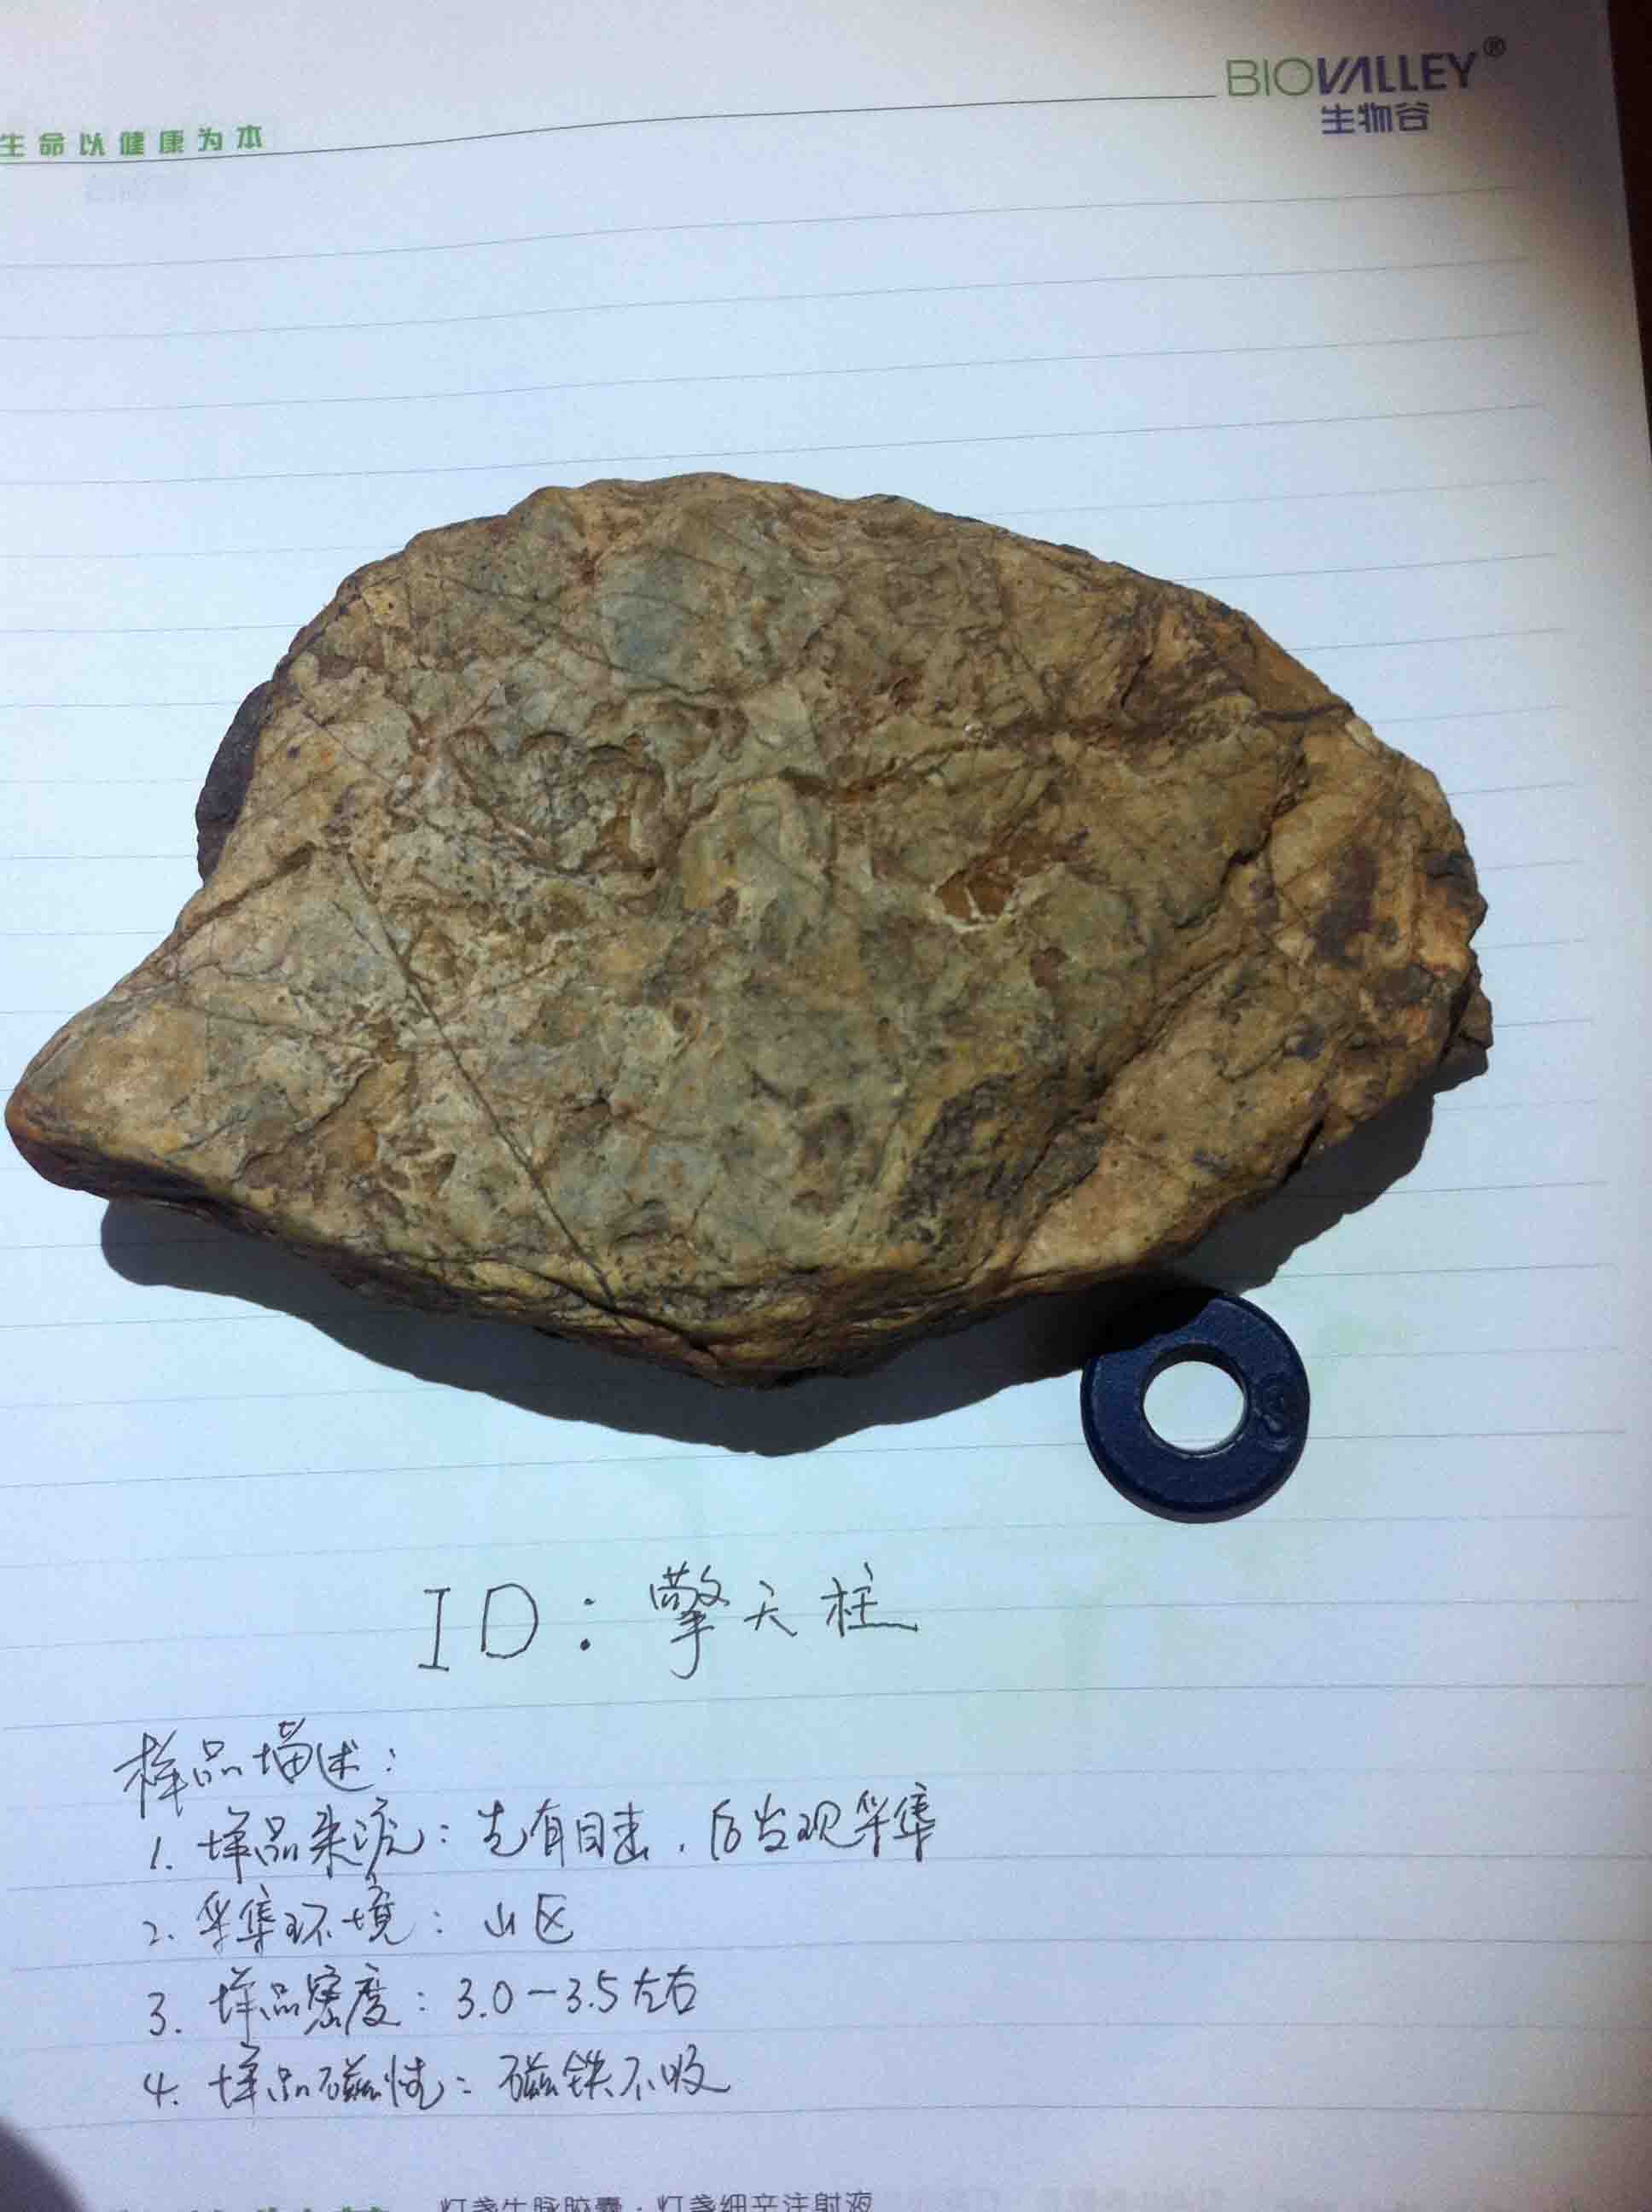 BIOVALLEY®
生物谷
生命以健康为本
ID：擎天柱
样品描述：
1. 样品来源：先有目击，后发现采集
2. 采集环境：山区
3. 样品密度：3.0-3.5左右
4. 样品磁性：磁铁不吸
灯盏生脉胶囊·灯盏细辛注射液